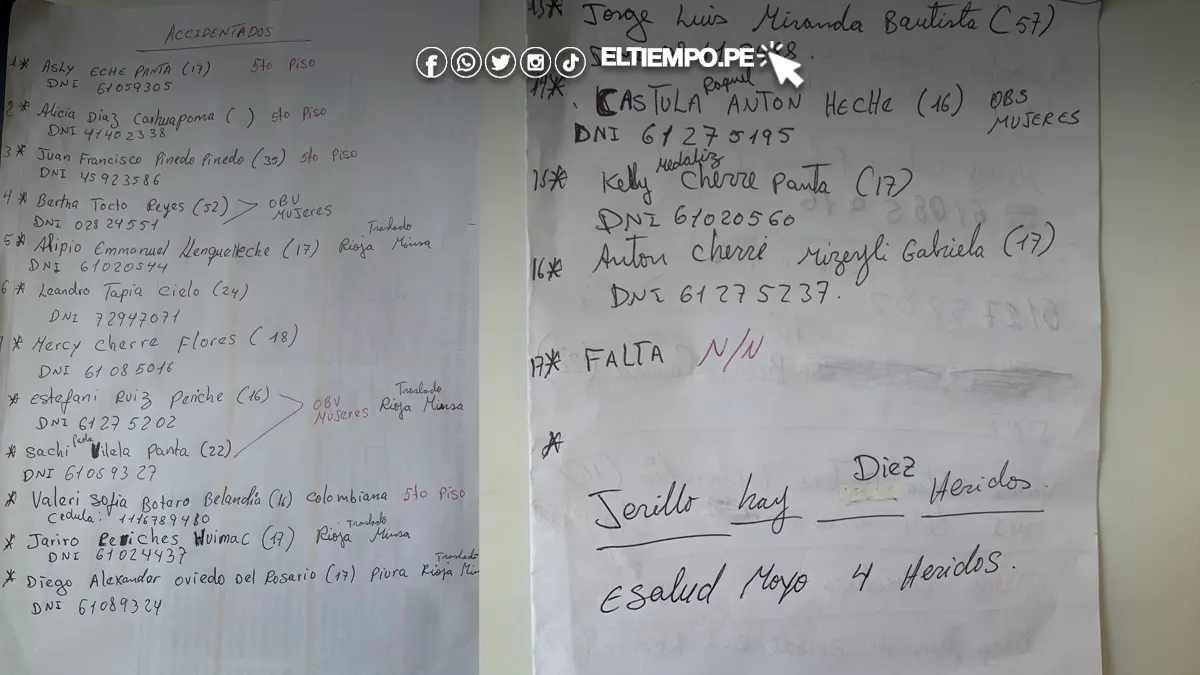 ACCIDENTADOS
1* ASLY ECHE PANTA (17) 5to PISO
DNI 61059305
2* Alicia Diaz Cashuapoma ( ) 5to PISO
DNI 41402338
3* Juan Francisco Pinedo Pinedo (35) 5to PISO
DNI 45923586
4* Bertha Tocto Reyes (52) OBV MUJERES
DNI 02824551
5* Alipio Emmanuel (17) Rioja Minsa Traslado
DNI 61020544
6* Leandro Tapia Cielo (24)
DNI 72947071
* Mercy Cherre Flores (18)
DNI 61085016
* Estefani Ruiz Periche (16) OBV MUJERES Traslado Rioja Minsa
DNI 61275202
* Sachi Vilela Panta (22)
DNI 61059327
* Valeri Sofia Botaro Belandia (16) Colombiana 5to PISO
Cedula: 1116789480
* Jariro Periches Huimac (17) Rioja Minsa Traslado
DNI 61024437
* Diego Alexander Oviedo Del Rosario (17) Piura Rioja Traslado
DNI 61089324
ELTIEMPO.PE
13* Jorge Luis Miranda Bautista (57)
14* CASTULA Raquel ANTON HECHE (16) OBS MUJERES
DNI 61275195
15* Kelly Medaliz Cherre Panta (17)
DNI 61020560
16* Anton Cherre Mizeyli Gabriela (17)
DNI 61275237.
17* FALTA N/N
*
Jerillo hay Diez Heridos.
Esalud Moyo 4 Heridos.